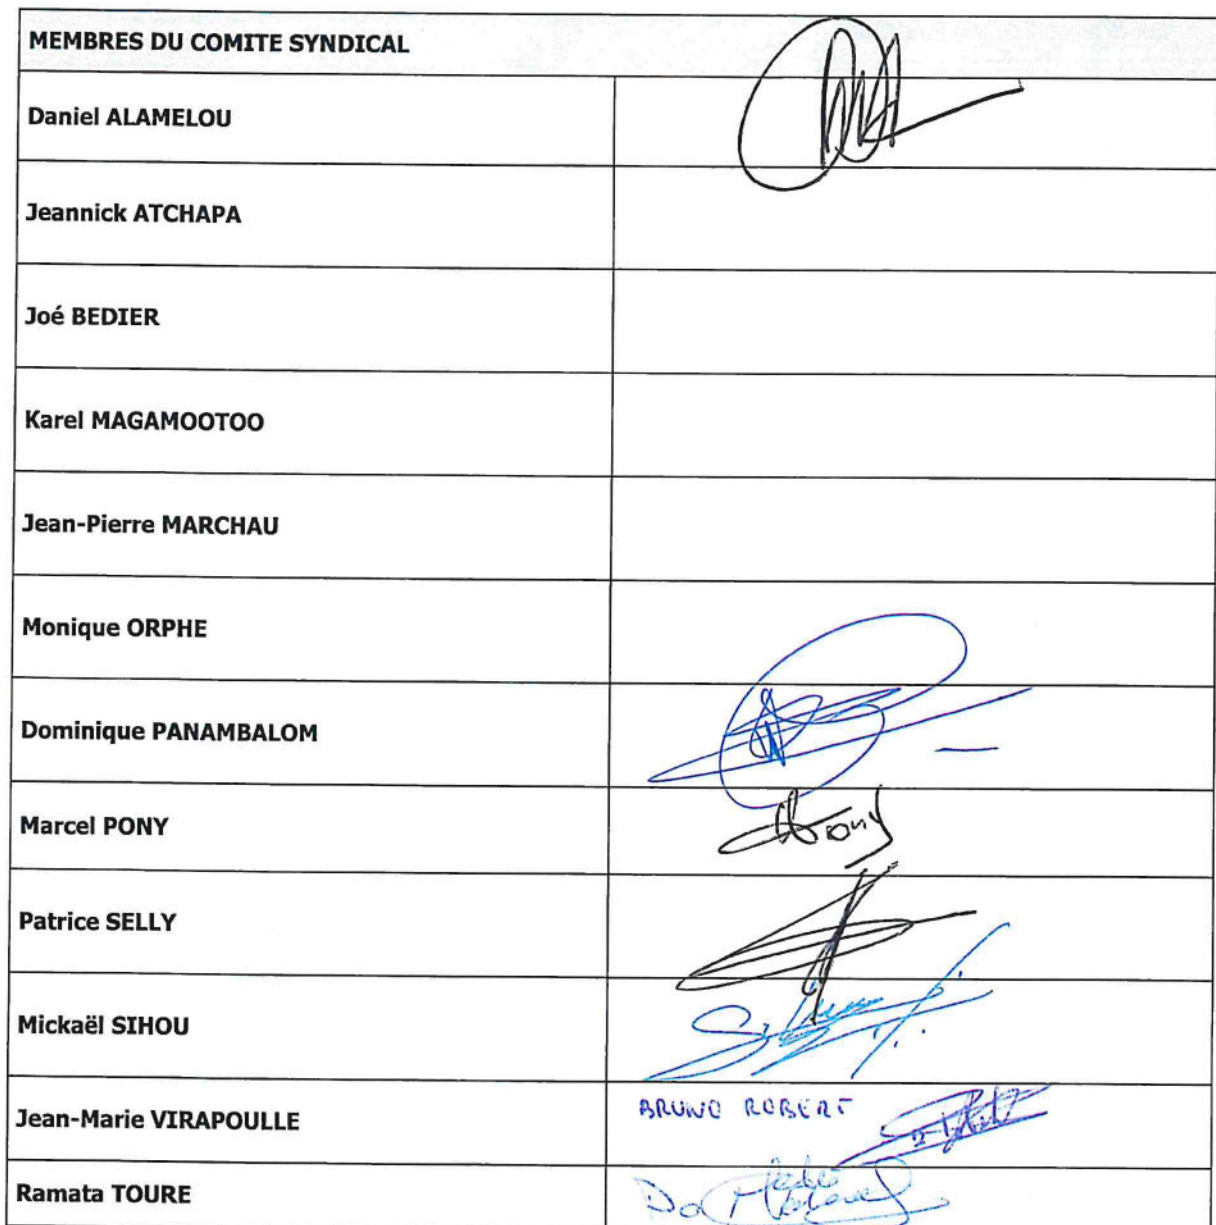 MEMBRES DU COMITE SYNDICAL
Daniel ALAMELOU
Jeannick ATCHAPA
Joé BEDIER
Karel MAGAMOOTOO
Jean-Pierre MARCHAU
Monique ORPHE
Dominique PANAMBALOM
Marcel PONY
Patrice SELLY
Mickaël SIHOU
Jean-Marie VIRAPOULLE BRUNO ROBERT
Ramata TOURE